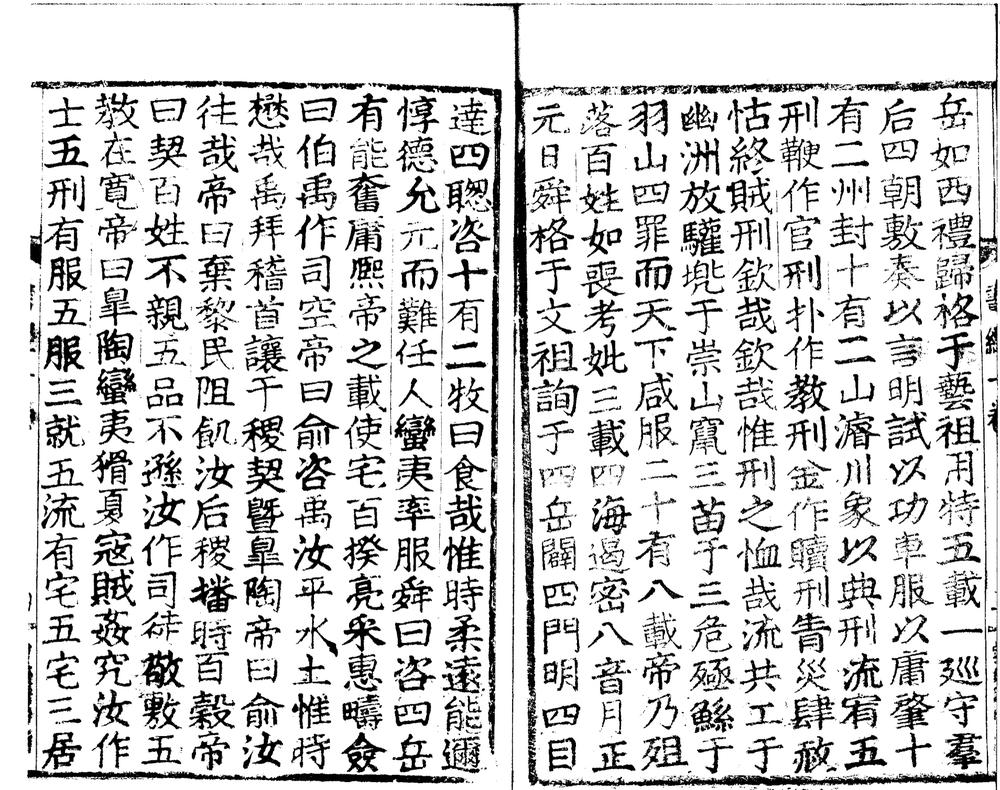 岳如西禮歸格于藝祖用特五載一巡守羣
后四朝敷奏以言明試以功車服以庸肇十
有二州封十有二山濬川象以典刑流宥五
刑鞭作官刑扑作教刑金作贖刑眚災肆赦
怙終賊刑欽哉欽哉惟刑之恤哉流共工于
幽洲放驩兜于崇山竄三苗于三危殛鯀于
羽山四罪而天下咸服二十有八載帝乃殂
落百姓如喪考妣三載四海遏密八音月正
元日舜格于文祖詢于四岳闢四門明四目
達四聰咨十有二牧曰食哉惟時柔遠能邇
惇德允元而難任人蠻夷率服舜曰咨四岳
有能奮庸熙帝之載使宅百揆亮采惠疇僉
曰伯禹作司空帝曰俞咨禹汝平水土惟時
懋哉禹拜稽首讓于稷契暨皐陶帝曰俞汝
往哉帝曰棄黎民阻飢汝后稷播時百穀帝
曰契百姓不親五品不遜汝作司徒敬敷五
教在寬帝曰皐陶蠻夷猾夏寇賊姦宄汝作
士五刑有服五服三就五流有宅五宅三居